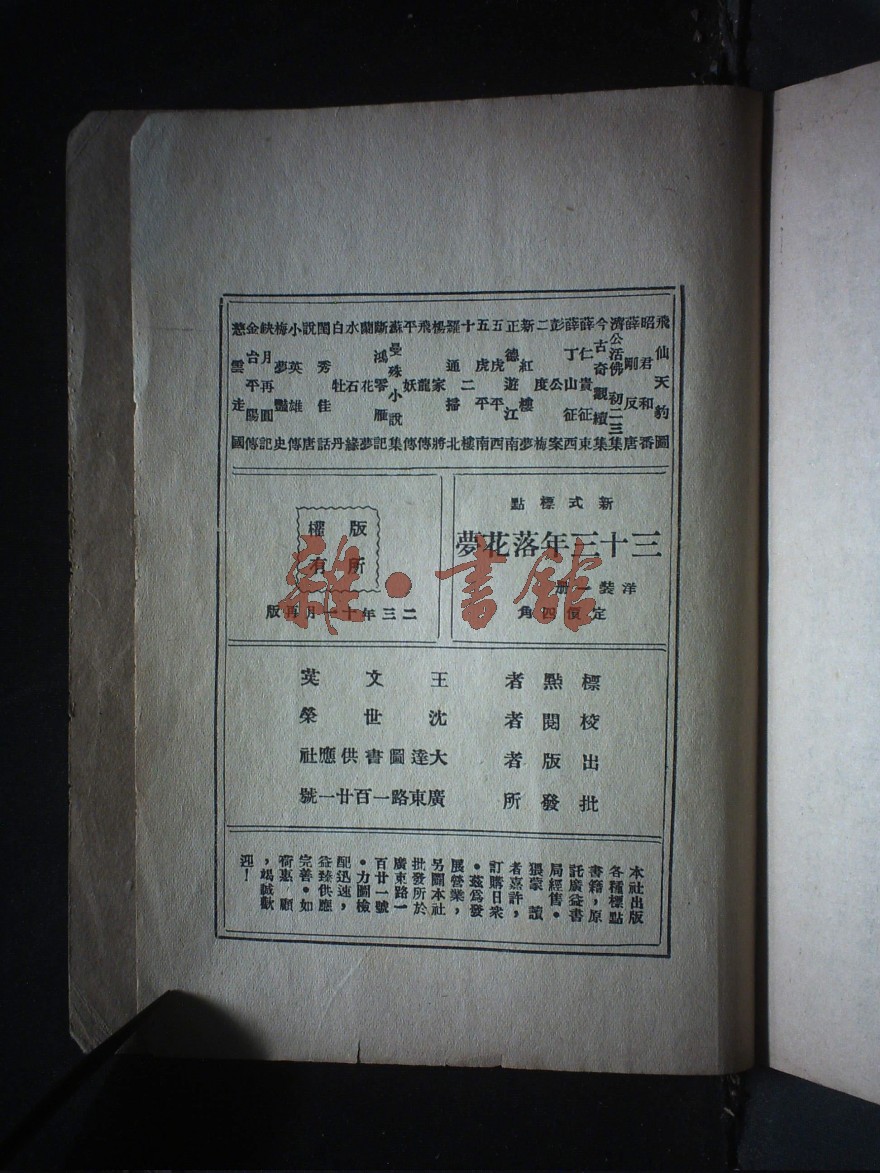 飛仙天豹圖
昭君和番
薛剛反唐
濟公活佛初二三集
今古奇觀續集
薛仁貴征東
薛丁山征西
彭公案
二度梅
新紅樓夢
正德遊江南
五虎平西
五虎平南
十二樓
羅通掃北
楊家將
飛龍傳
平妖傳
蘇曼殊小說集
斷鴻零雁記
蘭花夢
水石緣
白牡丹
閨秀佳話
說唐
小英雄傳
梅夢豔史
缺月再圓記
金台平陽傳
慈雲走國
新式標點
三十三年落花夢
洋裝一册
定價四角
版權
所有
二三年十一月再版
標點者 王文英
校閱者 沈世榮
出版者 大達圖書供應社
批發所 廣東路一百廿一號
本社出版
各種標點
書籍，原
託廣益書
局經售。
猥蒙讀
者嘉許，
訂購日衆
。茲爲發
展營業，
另闢本社
批發所於
廣東路一
百廿一號
。力圖檢
配迅速，
益臻供應
完善。如
荷惠顧
，竭誠歡
迎！
雜·書館